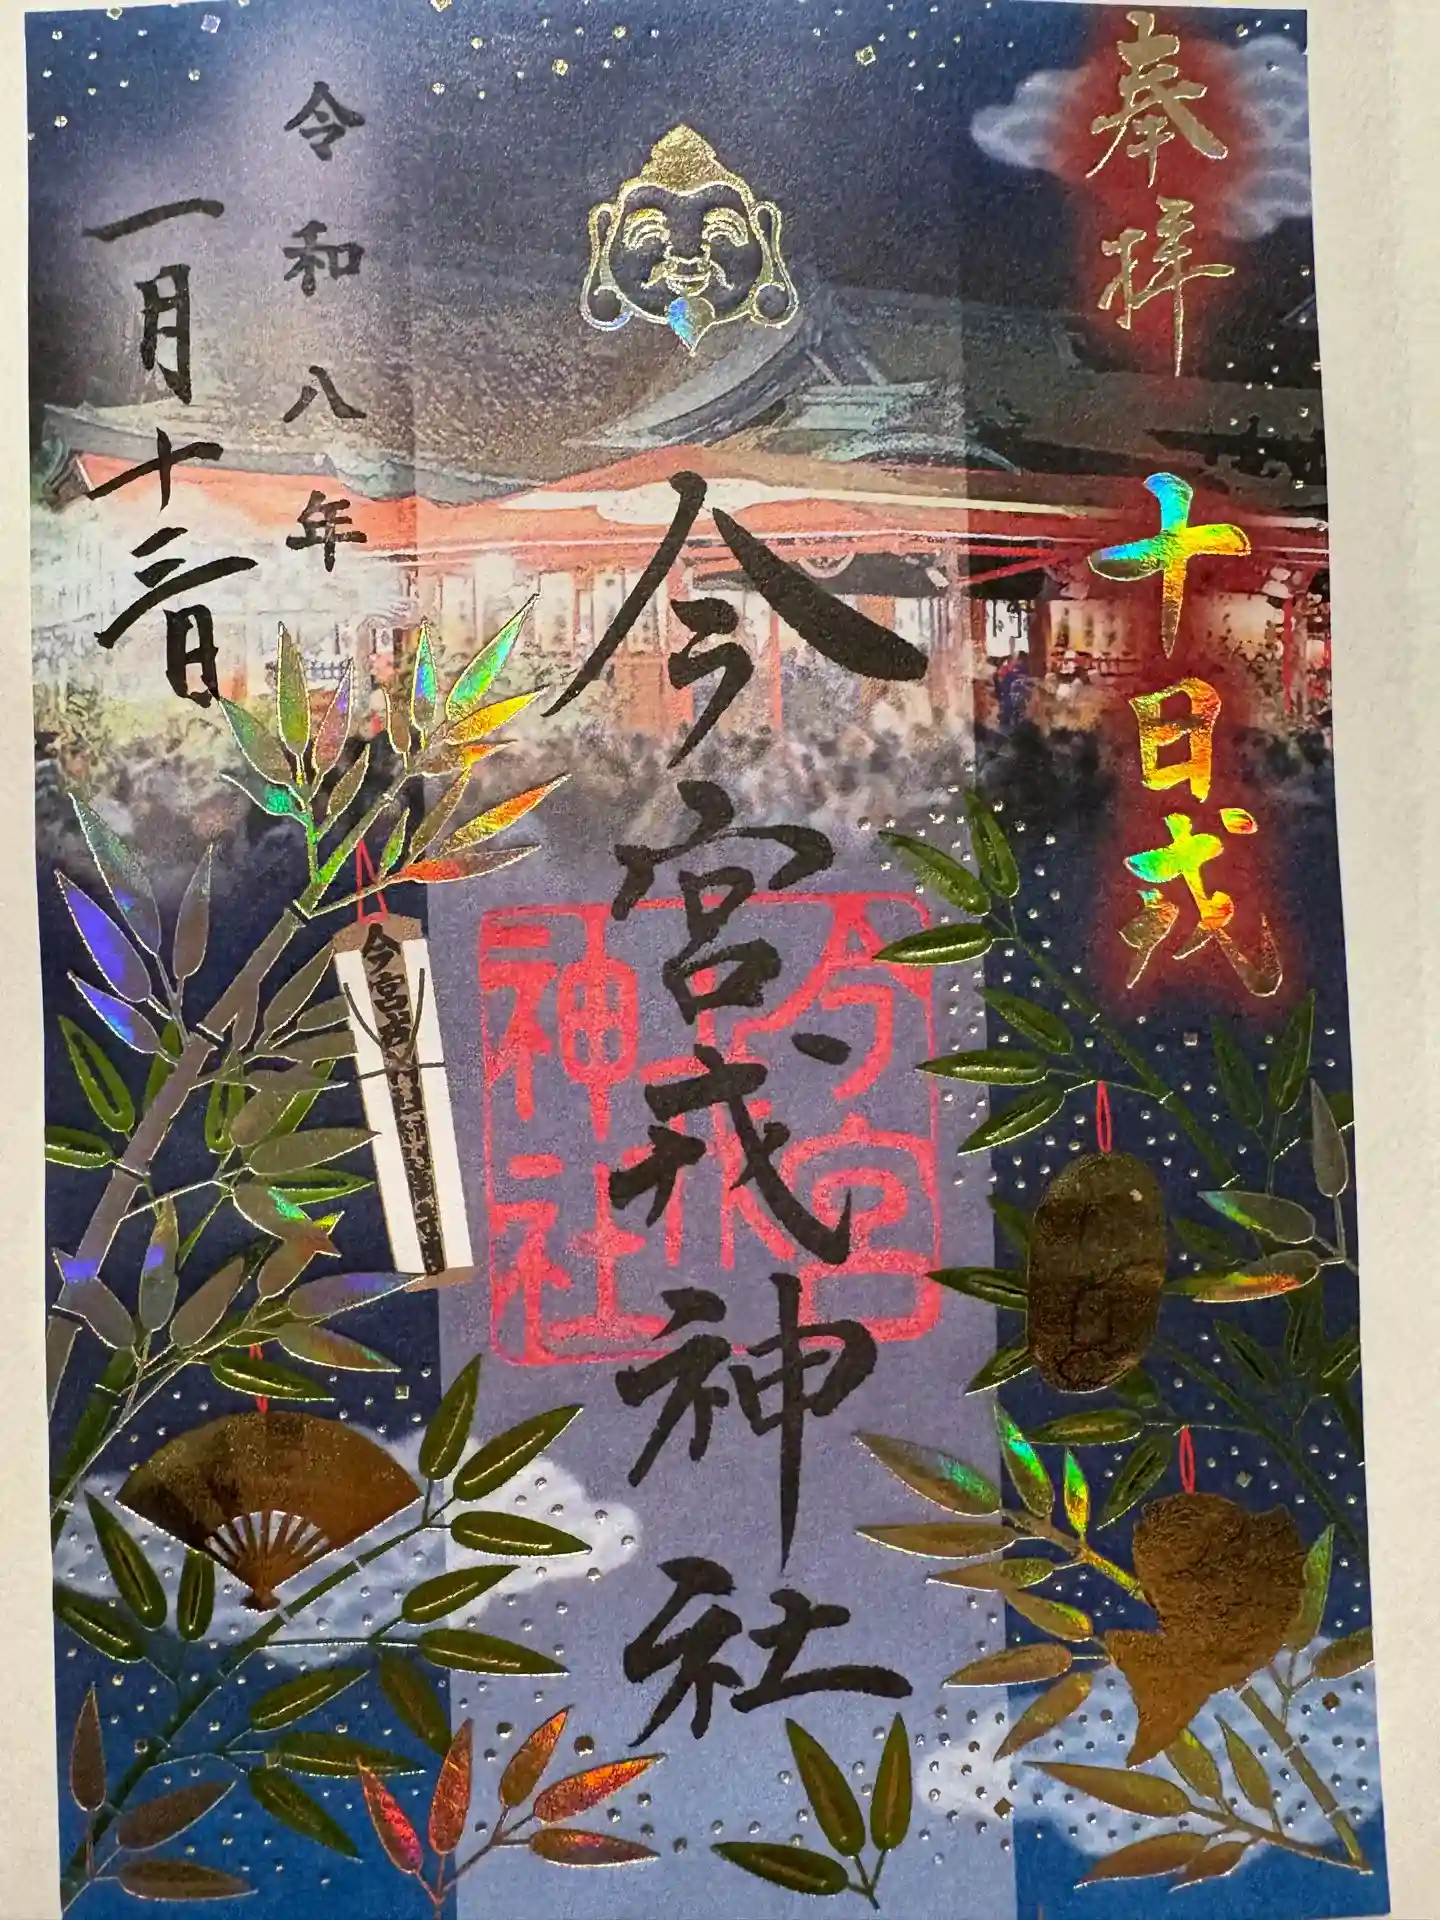 奉拝
十日戎
今宮戎神社
今宮
戎
神社
令和八年
一月十三日